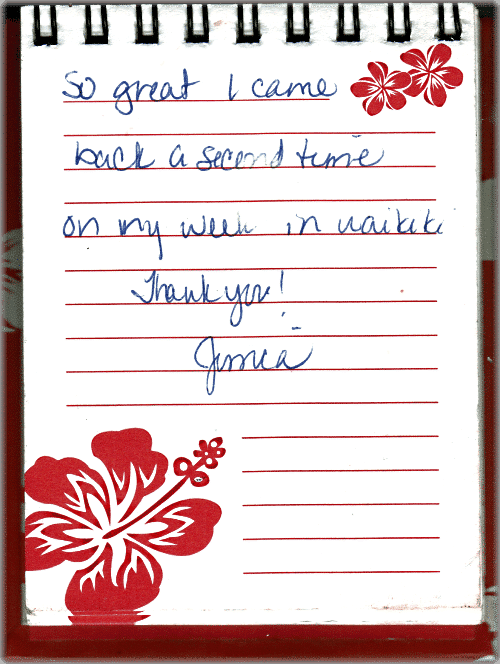 So great I came
back a second time
on my week in waikiki
Thank you!
Jessica